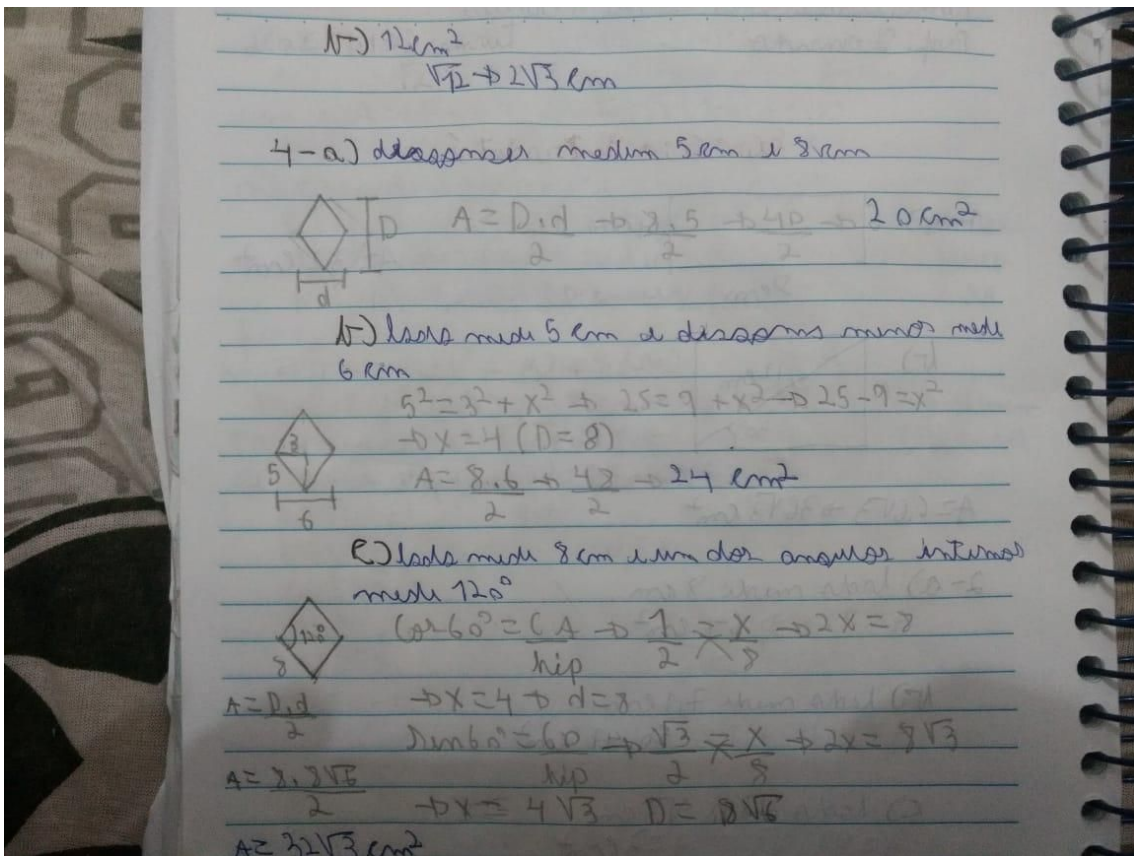 b-) 12cm²
√12 → 2√3 cm
4-a) diagonais medem 5cm e 8cm
D A = D.d/2 → 8.5/2 → 40/2 → 20cm²
d
b-) lado mede 5cm e diagonal menor mede
6cm
5² = 3² + x² → 25 = 9 + x² → 25 - 9 = x²
3 → x = 4 (D = 8)
5 A = 8.6/2 → 48/2 → 24 cm²
6
C) lado mede 8cm e um dos angulos internos
mede 120°
120° Cos60° = CA/hip → 1/2 = x/8 → 2x = 8
8
A = D.d/2 → x = 4 → d = 8
Sen60° = CO/hip → √3/2 = x/8 → 2x = 8√3
A = 8.8√6/2 → x = 4√3 D = 8√6
A = 32√3 cm²